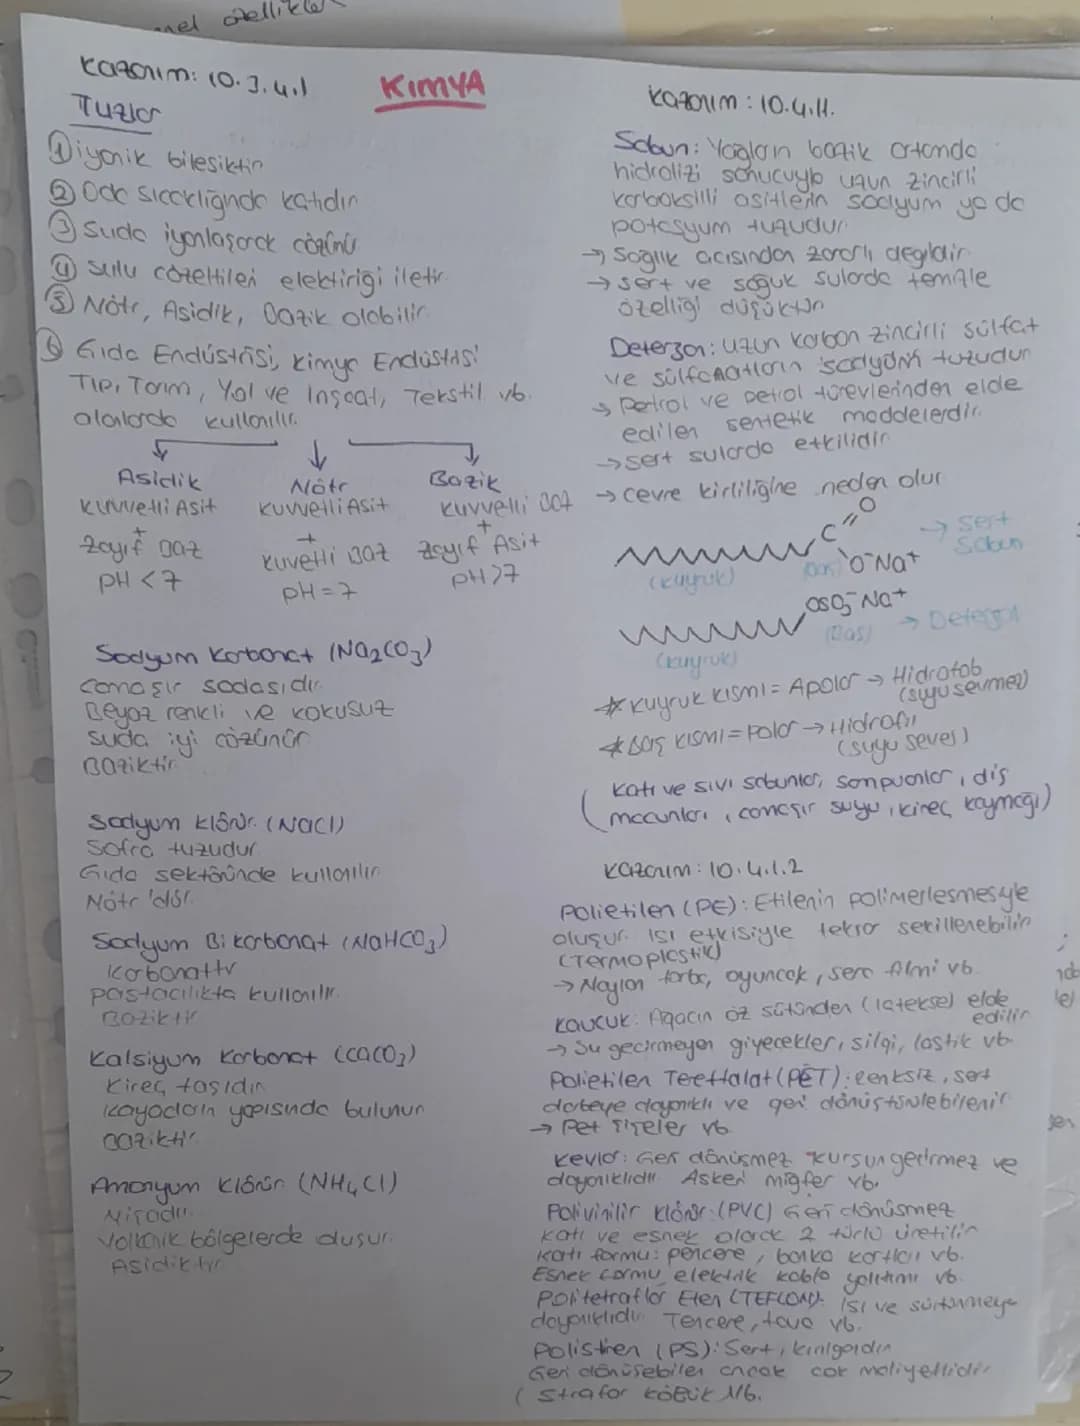 özellikler
Kazanım: 10.3.4.1
KİMYA
Tuzlar
① iyonik bileşiktir
② Oda sıcaklığında katıdır
③ Suda iyonlaşarak çözünür
④ Sulu çözeltileri elektiriği iletir
⑤ Nötr, Asidik, Bazik olabilir
⑥ Gıda Endüstrisi, Kimya Endüstrisi
Tıp, Tarım, Yol ve İnşaat, Tekstil vb.
alalarda kullanılır.
Asidik
Kuvvetli Asit
+
Zayıf Baz
pH < 7
Nötr
Kuvvetli Asit
+
Kuvetli Baz
pH = 7
Bazik
Kuvvetli Baz
+
Zayıf Asit
pH > 7
Sodyum Karbonat (Na2CO3)
Çamaşır sodasıdır
Beyaz renkli ve kokusuz
Suda iyi çözünür
Baziktir
Sodyum Klörür (NaCl)
Sofra tuzudur
Gıda sektöründe kullanılır
Nötr'dür.
Sodyum Bikarbonat (NaHCO3)
Karbonattır
pastacılıkta kullanılır.
Baziktir
Kalsiyum Karbonat (CaCO3)
Kireç taşıdır
Kayaların yapısında bulunur
Baziktir
Amonyum Klörür (NH4Cl)
Nişadır
Volkanik bölgelerde oluşur.
Asidiktir
Kazanım: 10.4.1.1.
Sabun: Yağların bazik ortamda
hidrolizi sonucuyla uzun zincirli
karboksilli asitlerin sodyum ya da
potasyum tuzudur.
→ Sağlık açısından zararlı değildir
→ sert ve soğuk sularda temizle
özelliği düşüktür
Deterjan: Uzun karbon zincirli sülfat
ve sülfonatların sodyum tuzudur
→ Petrol ve petrol türevlerinden elde
edilen sentetik maddelerdir.
→ sert sularda etkilidir
→ Çevre kirliliğine neden olur
C=O
O⁻Na⁺
(kuyruk) (baş)
→ Sert Sabun
OSO3⁻Na⁺
(kuyruk) (Baş)
→ Deterjan
* Kuyruk kısmı = Apolar → Hidrofob
(suyu sevmez)
* Baş kısmı = Polar → Hidrofil
(suyu sever)
(Katı ve sıvı sabunlar, şampuanlar, diş
macunları, çamaşır suyu, kireç kaymağı)
Kazanım: 10.4.1.2
Polietilen (PE): Etilenin polimerleşmesiyle
oluşur. Isı etkisiyle tekrar şekillenebilir
(Termoplastik)
→ Naylon torba, oyuncak, sera filmi vb.
Kauçuk: Ağacın öz sütünden (lateks) elde
edilir
→ Su geçirmeyen giyecekler, silgi, lastik vb
Polietilen Tereftalat (PET): Renksiz, sert
darbeye dayanıklı ve geri dönüştürülebilenir
→ Pet şişeler vb
Kevlar: Geri dönüşmez kurşun geçirmez ve
dayanıklıdır. Askeri miğfer vb.
Polivinilir klörür: (PVC) Geri dönüşmez
Katı ve esnek olarak 2 türlü üretilir
Katı formu: pencere, banka kartları vb.
Esnek formu elektrik kablo yalıtımı vb.
Politetraflor Eten (TEFLON): Isı ve sürtünmeye
dayanıklıdır. Tencere, tava vb.
Polistiren (PS): Sert, kırılgandır
Geri dönüşebilen ancak çok maliyetlidir
(Strafor köpük vb.